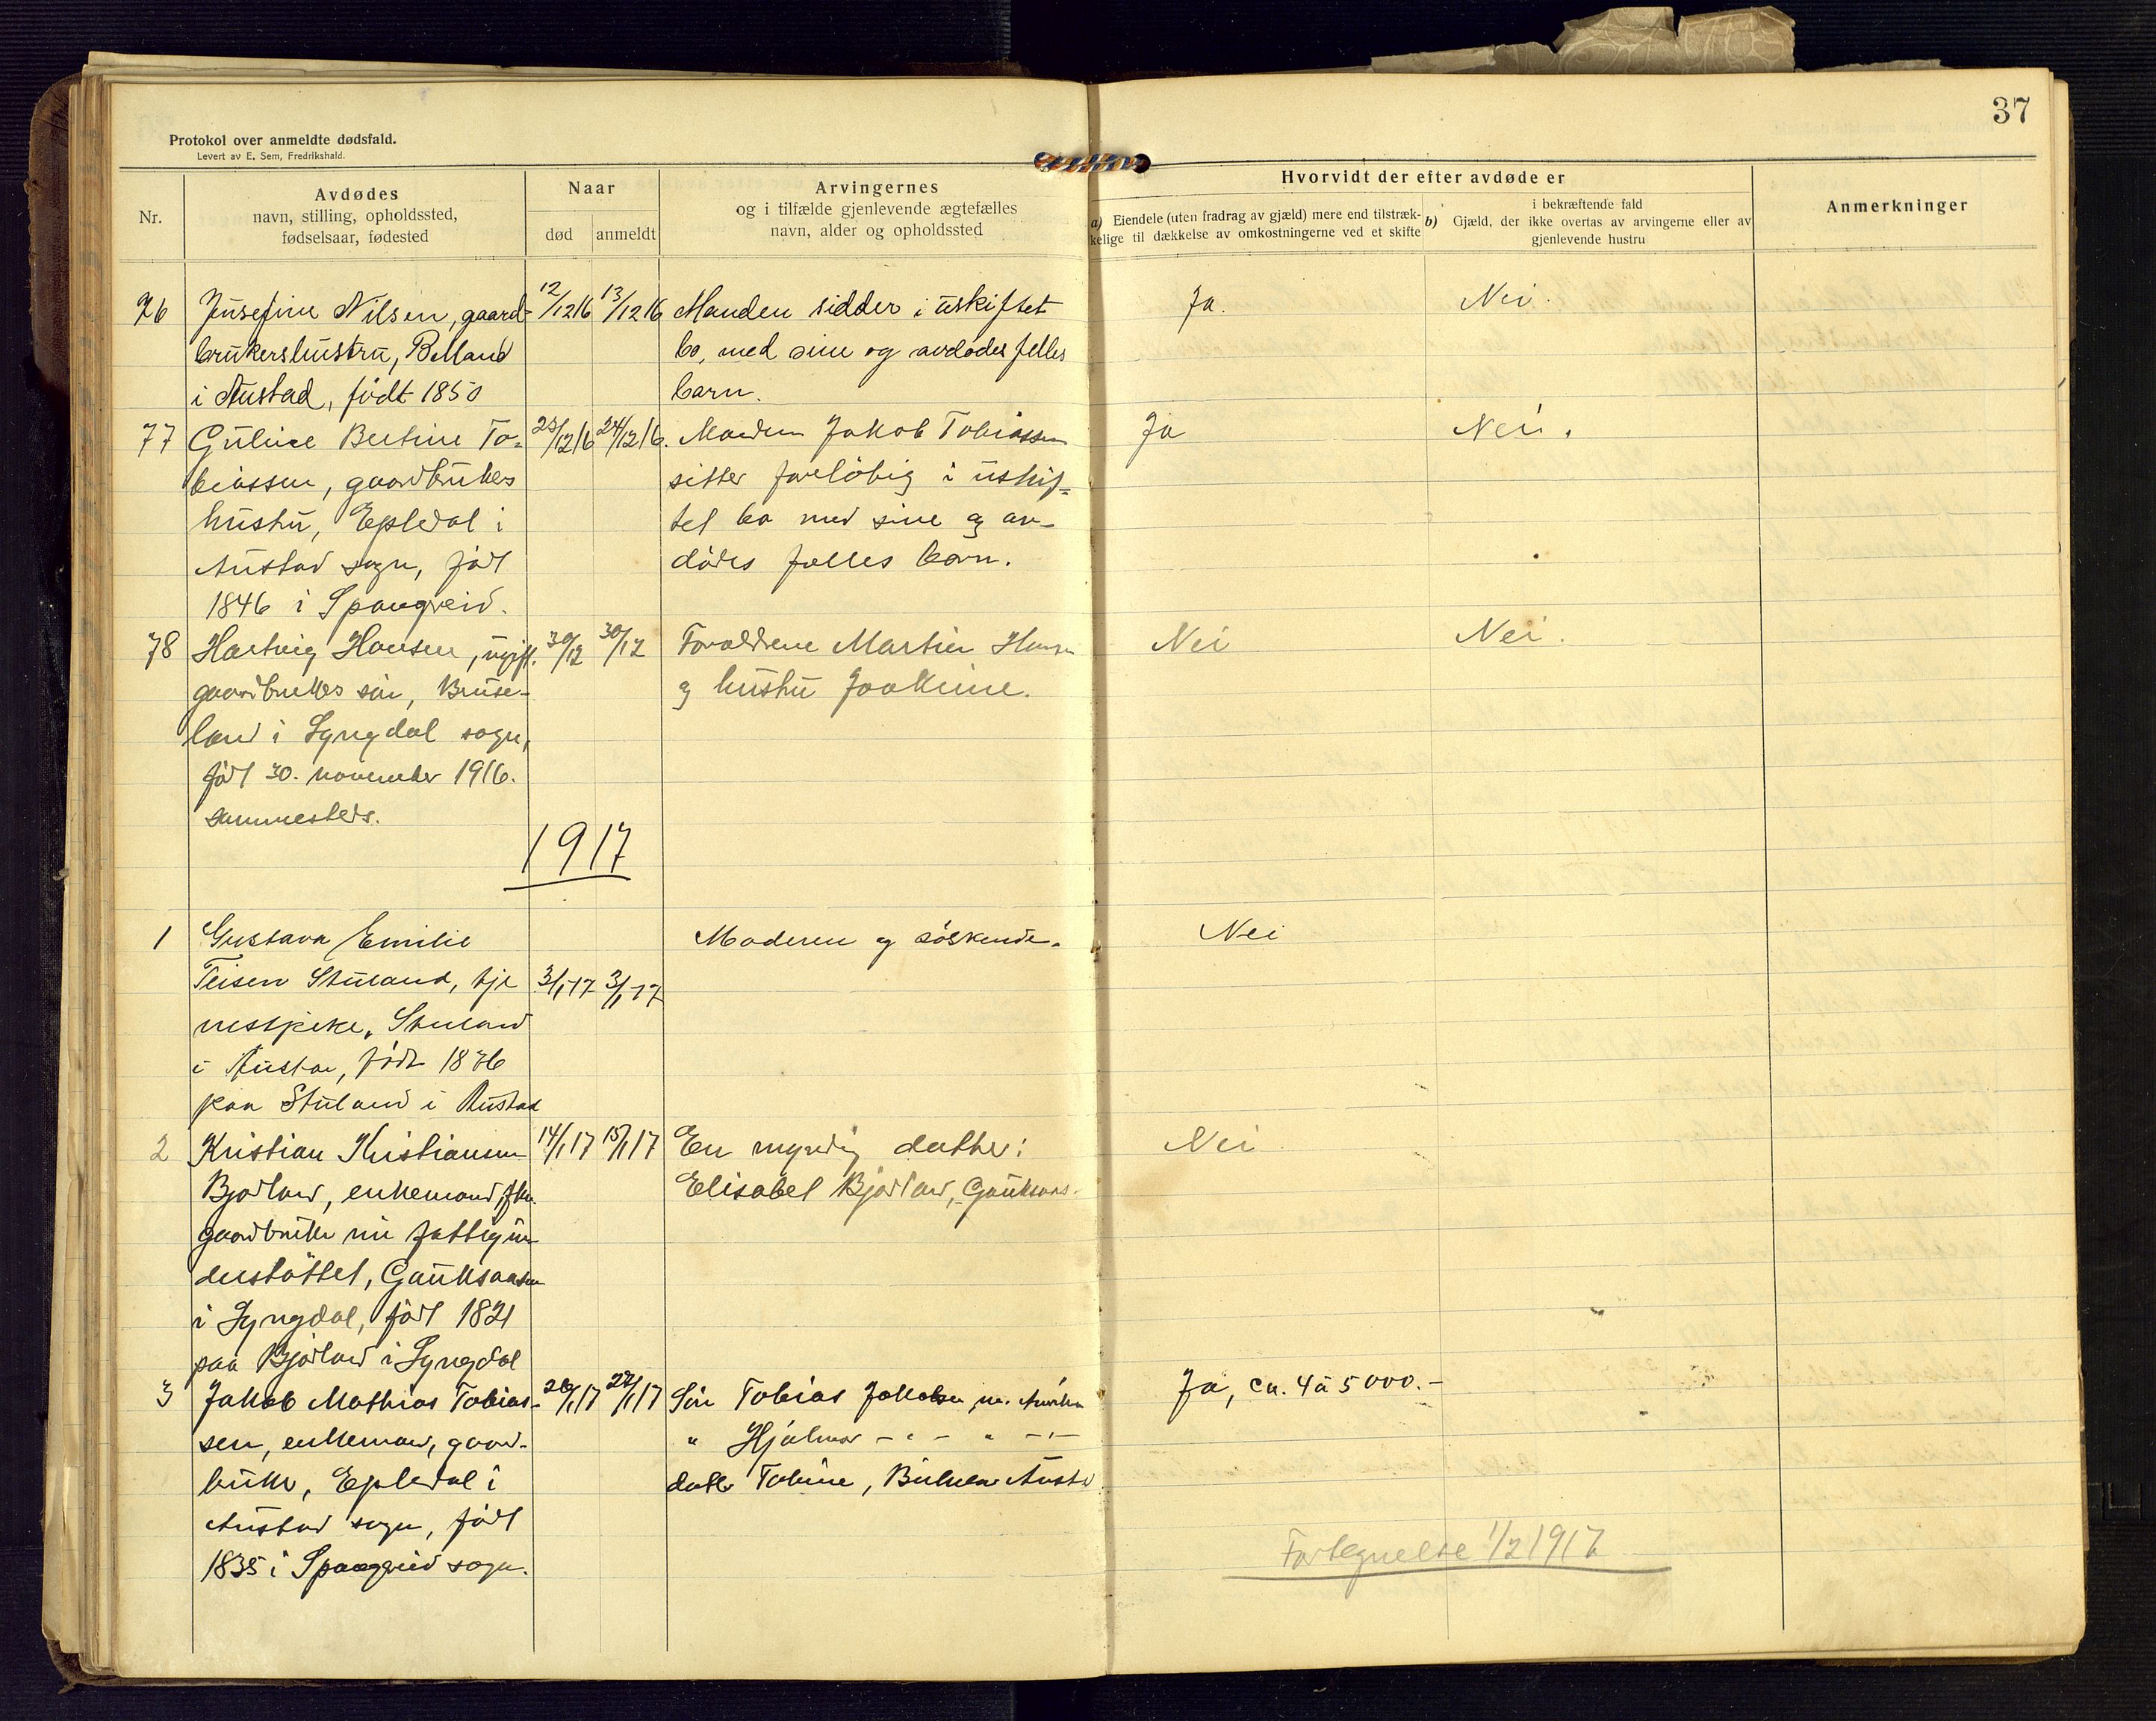 37
Protokol over anmeldte dødsfald.
Levert av E. Sem, Fredrikshald.
Nr.
Avdødes
navn, stilling, opholdssted,
fødselsaar, fødested
Naar
død
anmeldt
Arvingernes
og i tilfælde gjenlevende ægtefælles
navn, alder og opholdssted
Hvorvidt der efter avdøde er
a) Eiendele (uten fradrag av gjæld) mere end tilstræk-
kelige til dækkelse av omkostningerne ved et skifte
i bekræftende fald
b) Gjæld, der ikke overtas av arvingerne eller av
gjenlevende hustru
Anmerkninger
76 Jusefine Nilsen, gaard- 12/1216 13/1216 Manden sidder i uskiftet Ja. Nei.
brukershustru, Belland bo, med sine og avdødes felles
i Austad, født 1850 barn.
77 Guline Bertine To- 23/1216 24/1216. Manden Jakob Tobiassen Ja Nei.
biassen, gaardbrukers sitter foreløbig i uskif-
hustru, Epledal i tet bo med sine og av-
Austad sogn, født dødes felles barn.
1846 i Spangreid.
78 Hartvig Hansen, ugift. 30/12 30/12 Forældrene Martin Hansen Nei Nei.
gaardbrukers søn, Bruse- og hustru Joakime.
land i Lyngdal sogn,
født 30. november 1916.
sammesteds.
1917
1 Gustava Emilie Moderen og søskende. Nei
Teisen Stuland, tje 3/1-17 3/1-17
nestpike, Stuland
i Austad, født 1876
paa Stuland i Austad
2 Kristian Kristiansen 14/1 17 15/1 17 En myndig datter: Nei
Bjørland, enkemand fhv. Elisabet Bjørland,
gaardbruker nu fattigun-
derstøttet,
i Lyngdal, født 1821
paa Bjørland i Lyngdal
3 Jakob Mathias Tobias- 26/1 17 27/1 17 Søn Tobias Jakobsen, Ja, ca. 4 à 5000.-
sen, enkemand, gaard- " Hjalmar - " - " - " -
bruker, Epledal i datter Tobine, Austad
Austad sogn, født
1835 i Spangreid sogn.
Fortegnelse 1/2 1917